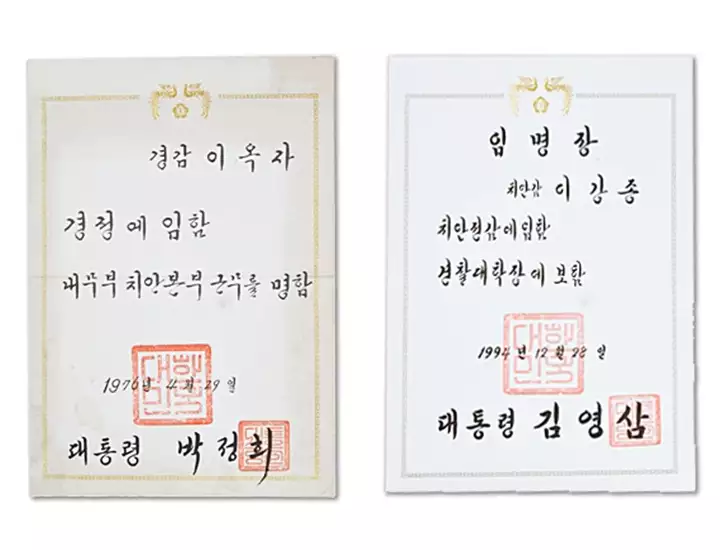 경감 이옥자
경정에 임함
내무부 치안본부 근무를 명함
1976년 4월 29일
대통령 박정희
대한민국
임명장
치안감 이강종
치안정감에 임함
경찰대학장에 보함
1994년 12월 28일
대통령 김영삼
대한민국